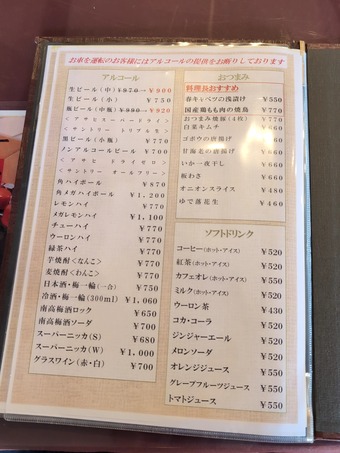 お車を運転のお客様にはアルコールの提供をお断りしております
アルコール
生ビール(中) ¥970→¥900
生ビール(小) ¥750
瓶ビール(中瓶) ¥990→¥920
<アサヒスーパードライ>
<サントリー トリプル生>
黒ビール(小瓶) ¥770
ノンアルコールビール ¥700
<アサヒ ドライゼロ>
<サントリー オールフリー>
角ハイボール ¥870
角メガハイボール ¥1,200
レモンハイ ¥770
メガレモンハイ ¥1,100
チューハイ ¥770
ウーロンハイ ¥770
緑茶ハイ ¥770
芋焼酎<なんこ> ¥770
麦焼酎<わんこ> ¥770
日本酒・梅一輪(一合) ¥750
冷酒・梅一輪(300ml) ¥1,060
南高梅酒ロック ¥650
南高梅酒ソーダ ¥700
スーパーニッカ(S) ¥680
スーパーニッカ(W) ¥1,000
グラスワイン(赤・白) ¥700
おつまみ
料理長おすすめ
春キャベツの浅漬け ¥550
国産鶏もも肉の焼鳥 ¥770
おつまみ焼豚(4枚) ¥770
白菜キムチ ¥660
ゴボウの唐揚げ
甘海老の唐揚げ
いか一夜干し
板わさ ¥550
オニオンスライス ¥480
ゆで落花生 ¥460
ソフトドリンク
コーヒー(ホット・アイス) ¥520
紅茶(ホット・アイス) ¥520
カフェオレ(ホット・アイス) ¥550
ミルク(ホット・アイス) ¥520
ウーロン茶 ¥430
コカ・コーラ ¥520
ジンジャーエール ¥520
メロンソーダ ¥520
オレンジジュース ¥550
グレープフルーツジュース ¥550
トマトジュース ¥550